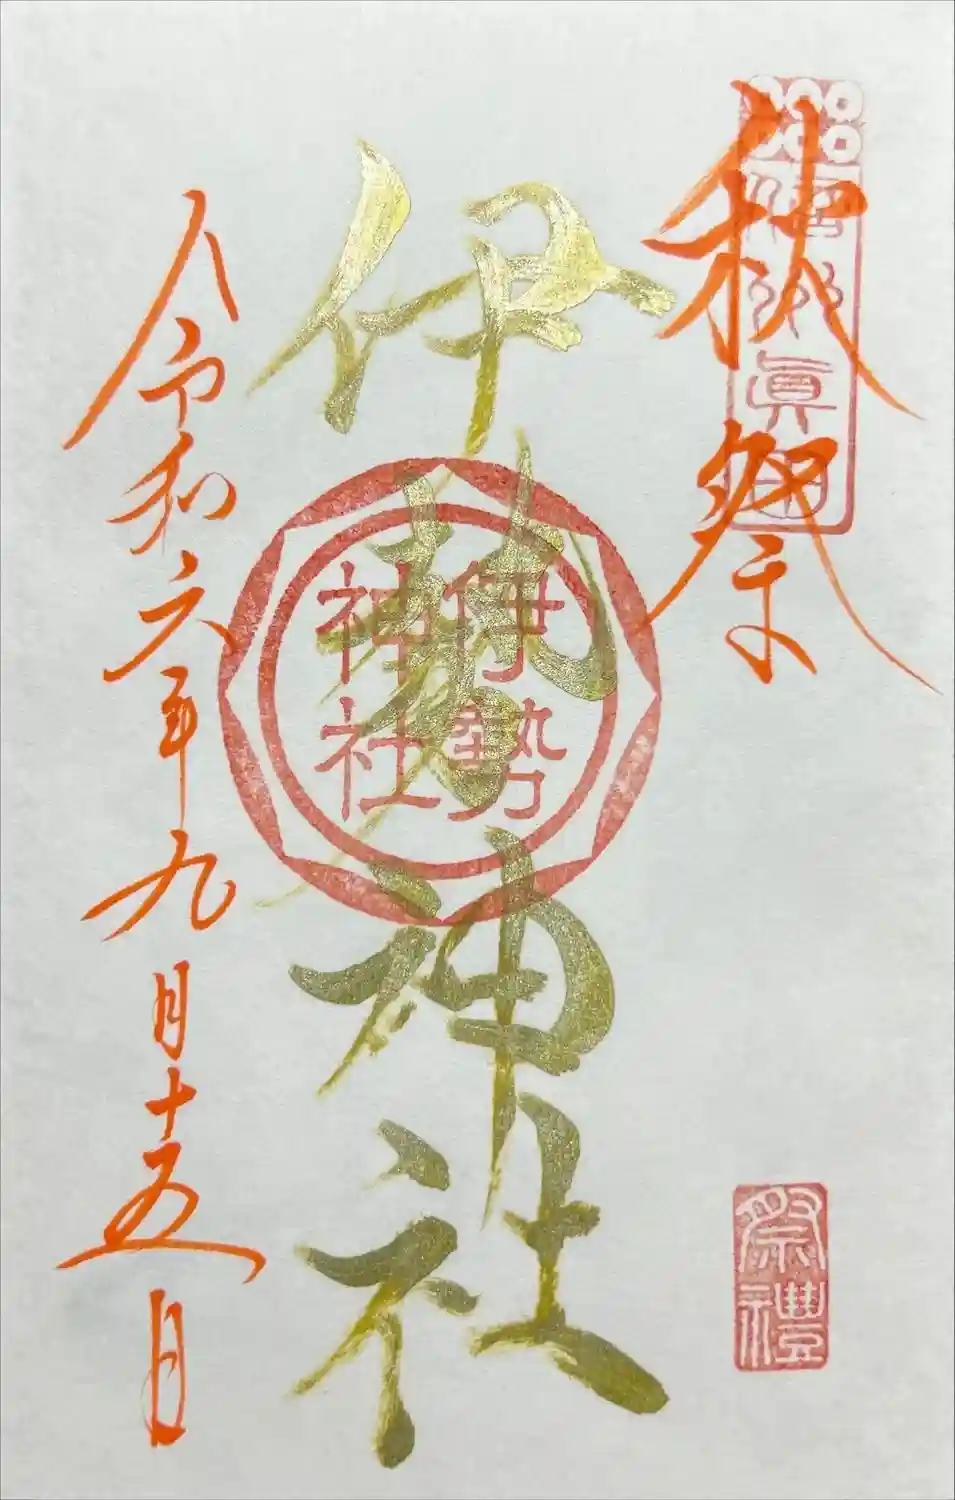 秋祭
信州真田
祭禮
伊勢神社
伊勢
神社
令和六年九月十五日